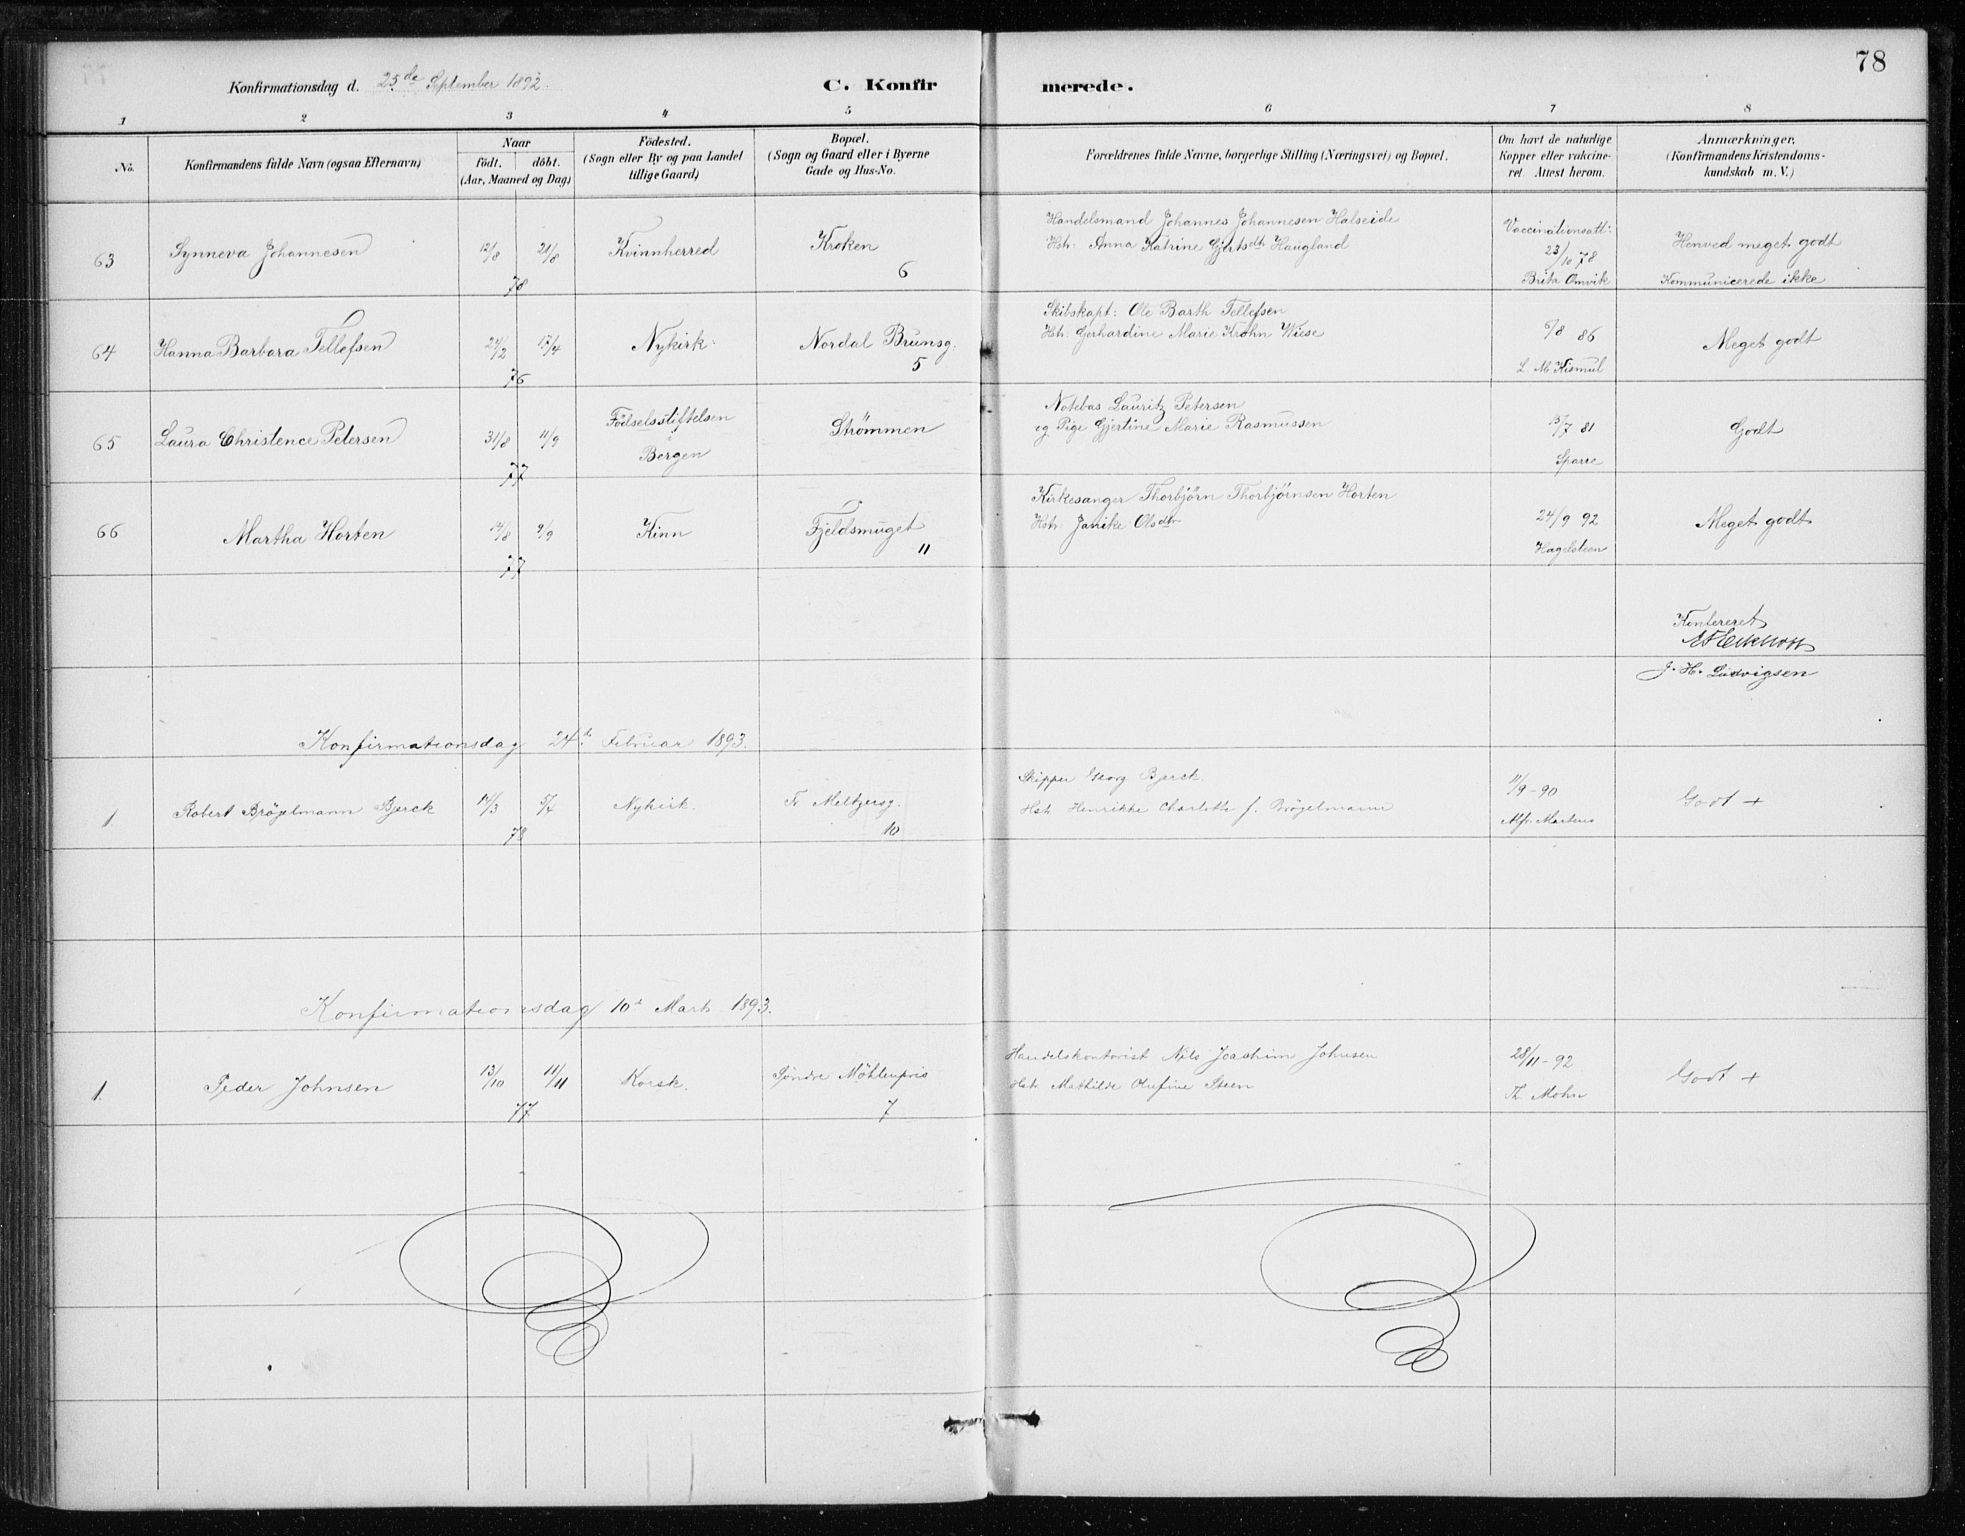 78
Konfirmationsdag d. 25de September 1892.
C. Konfirmerede.
1 2 3 4 5 6 7 8
No.
Konfirmandens fulde Navn (ogsaa Efternavn)
Naar
födt. döbt.
(Aar, Maaned og Dag)
Födested.
(Sogn eller By og paa Landet
tillige Gaard)
Bopæl.
(Sogn og Gaard eller i Byerne
Gade og Hus-No.
Forældrenes fulde Navne, borgerlige Stilling (Næringsvei) og Bopæl.
Om havt de naturlige
Kopper eller vakcine-
ret. Attest herom.
Anmærkninger.
(Konfirmandens Kristendoms-
kundskab m. V.)
63 Synneva Johannesen 12/8 21/8 78 Kvinnherred Kroken 6
Handelsmand Johannes Johannesen Halseide
Hstr: Anna Katrine Gjertsdtr Haugland
Vaccinationsatt:
23/10 78
Brita Omvik
Henved meget godt
Kommunicerede ikke
64 Hanna Barbara Tellefsen 24/2 17/4 76 Nykirk: Nordal Brunsg. 5
Skibskapt: Ole Barth Tellefsen
Hstr: Gerhardine Marie Krohn Wiese
6/8 86
L. M. Kismul
Meget godt
65 Laura Christence Petersen 31/8 11/9 77
Födselsstiftelsen
i
Bergen
Strömmen
Notebas Lauritz Petersen
og Pige Gjertine Marie Rasmussen
13/7 81
Sparre
Godt
66 Martha Horten 14/8 9/9 77 Kinn Fjeldsmuget 11
Kirkesanger Thorbjörn Thorbjørnsen Horten
Hstr: Janike Olsdtr
24/9 92
Hagelsteen
Meget godt
Konfereret
J. H. Ludvigsen
Konfirmationsdag 24de Februar 1893.
1 Robert Brögelmann Bjerck 14/3 5/4 78 Nykirk. Fr. Meltzersg. 10
Skipper Georg Bjerck.
Hstr Henrikke Charlotte f. Brögelmann
11/9-90
Alfr. Martens
Godt +
Konfirmationsdag 10de Marts 1893.
1. Peder Johnsen 13/10 11/11 77. Korsk. Söndre Möhlenpris 7
Handelskontorist Nils Joachim Johnsen
Hstr Mathilde Olufine Steen
28/11-92
Th. Mohn
Godt +